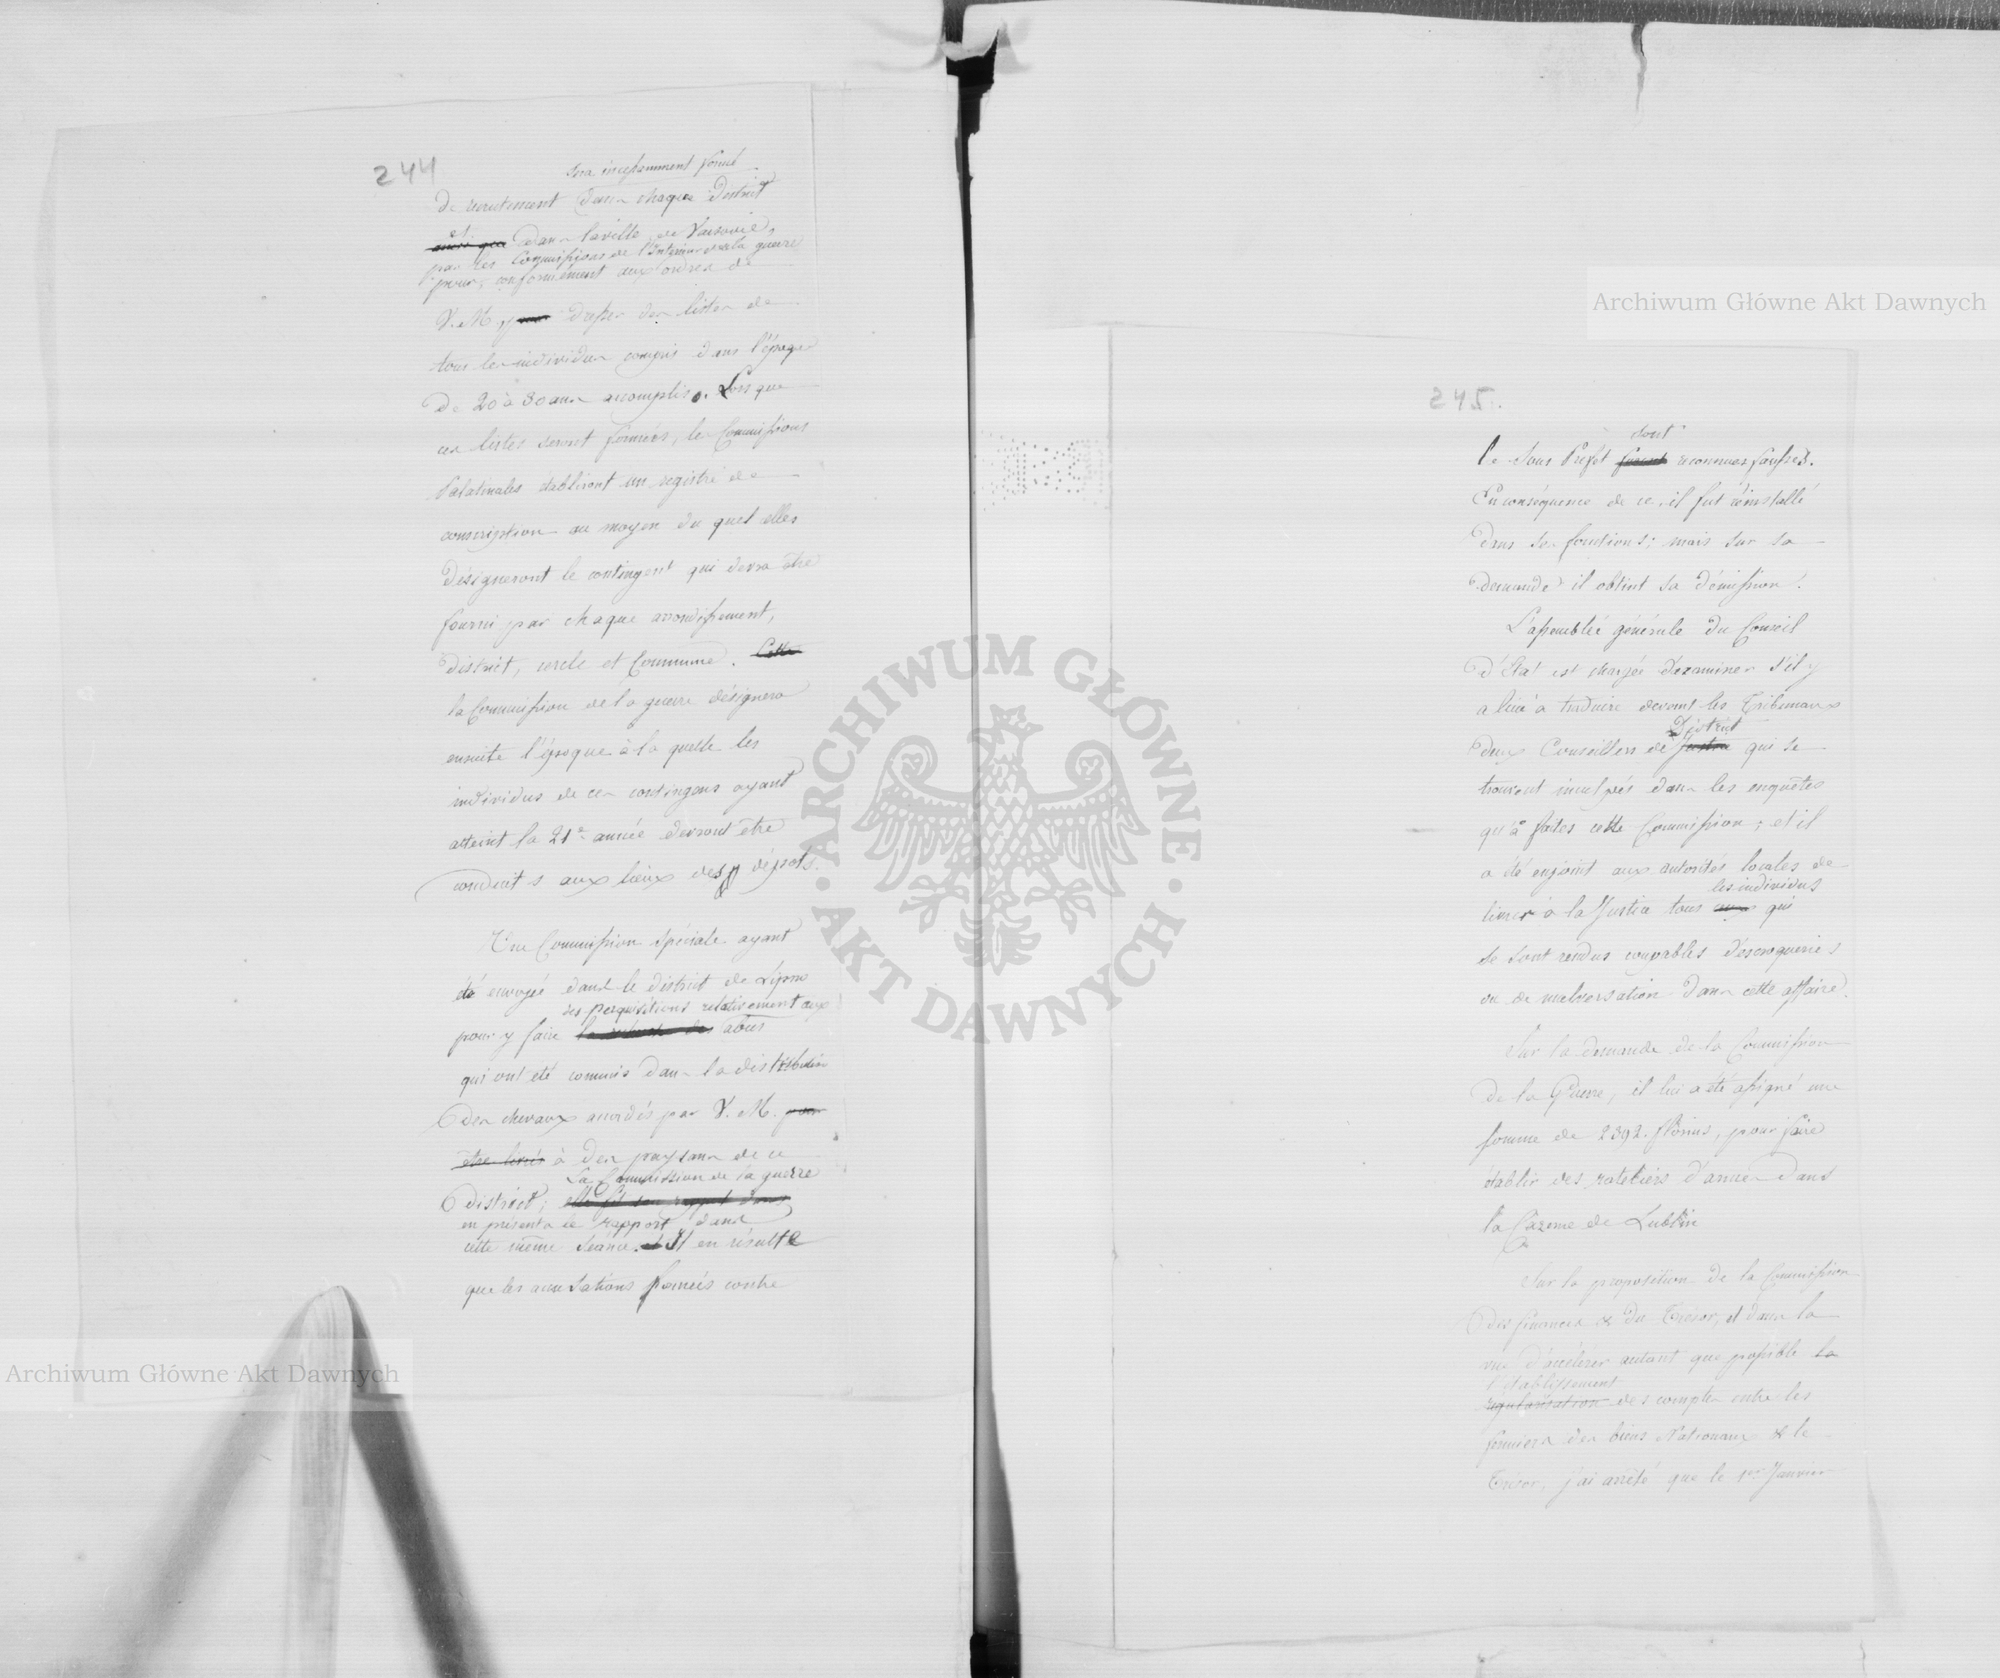 244
sera incessamment formé
de recrutement dans chaque District
et
ainsi que dans la ville de Varsovie,
par les Commissions de l'Intérieur et de la guerre
pour, conformément aux ordres de
V. M. pour dresser des listes de
tous les individus compris dans l'époque
de 20 à 30 ans accomplis. Lorsque
ces listes seront formées, les Commissions
Palatinales établiront un registre de
conscription au moyen du quel elles
désigneront le contingent qui devra être
fourni par chaque arrondissement,
district, cercle et Commune. Cette
la Commission de la guerre désignera
ensuite l'époque à la quelle les
individus de ces contingens ayant
atteint la 21e année devront être
conduits aux lieux des dépots.
Une Commission spéciale ayant
été envoyée dans le district de Lipno
des perquisitions relativement aux
pour y faire abus
qui ont été commis dans la distribution
des chevaux accordés par V. M. pour
être livrés à des paysans de ce
La Commission de la guerre
District; elle fit son rapport dans
en présenta le rapport dans
cette même séance. et Il en résulte
que les accusations formées contre
245.
sont
le Sous Préfet furent reconnues fausses.
En conséquence de ce, il fut réinstallé
dans ses fonctions; mais sur sa
demande il obtint sa démission.
L'assemblée générale du Conseil
d'Etat est chargée d'examiner s'il y
a lieu à traduire devant les Tribunaux
District
deux Conseillers de Justice qui se
trouvent inculpés dans les enquêtes
qu'a faites cette Commission; et il
a été enjoint aux autorités locales de
les individus
livrer à la Justice tous ceux qui
se sont rendus coupables d'escroqueries
ou de malversation dans cette affaire.
Sur la demande de la Commission
de la Guerre, il lui a été assigné une
somme de 2392. florins, pour faire
établir des rateliers d'armes dans
la Cazerne de Lublin
Sur la proposition de la Commission
des finances & du Trésor, et dans la
vue d'accélérer autant que possible la
l'établissement
régularisation des comptes entre les
fermiers des biens Nationaux & le
Trésor, j'ai arrêté que le 1er Janvier
Archiwum Główne Akt Dawnych
Archiwum Główne Akt Dawnych
ARCHIWUM GŁÓWNE · AKT DAWNYCH ·